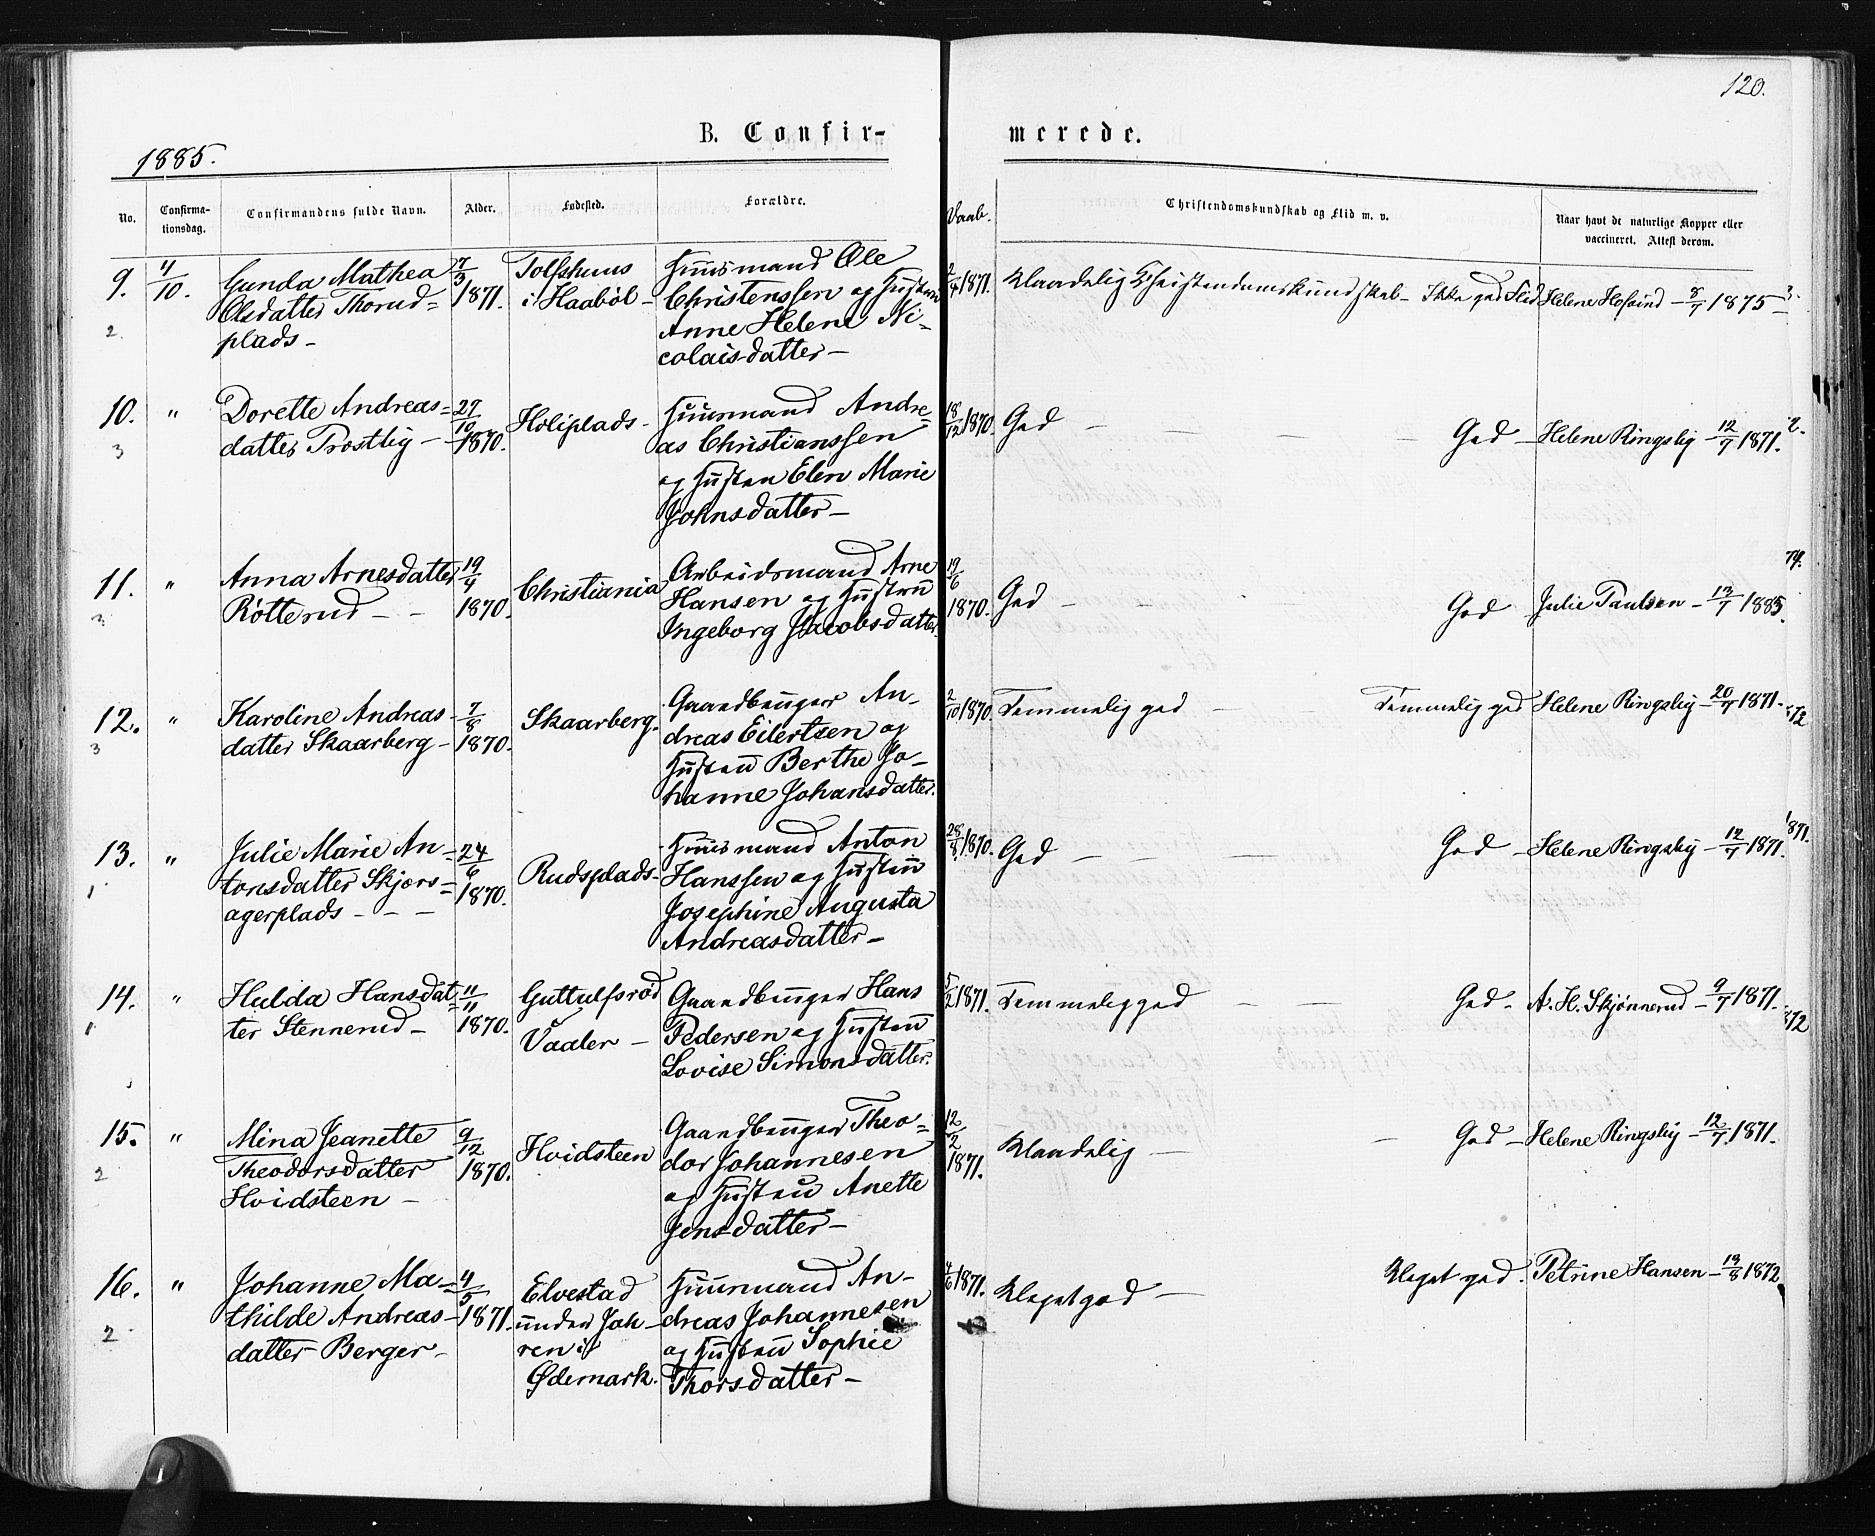 120.
B. Confir-merede.
1885.
No. Confirma-tionsdag. Confirmandens fulde Navn. Alder. Fødested. Forældre. Daab. Christendomskundskab og Flid m. v. Naar havt de naturlige Kopper eller vaccineret. Attest derom.
9. 4/10. Gunda Mathea 7/3 Tolfshuus Huusmand Ole 2/4 1871. Maadelig Christendomskundskab - Ikke god Flid Helene Hofsind - 8/7 1875
2. Olsdatter Thorud= 1871. i Haabøl - Christenssen og Hustru
plads - Anne Helene Ni-
colaisdatter -
10. " Dorette Andreas= 27/10 Holiplads - Huusmand Andre- 18/12 1870. God - - - God - Helene Ringsby - 12/7 1871.
3 datter Trostby - 1870. as Christianssen
og Hustru Elen Marie
Johnsdatter -
11. " Anna Arnesdatter 19/4 Christiania Arbeidsmand Arne 19/6 God - God Julie Paulsen - 13/7 1885.
3 Røtterud - - 1870. Hansen og Hustru 1870.
Ingeborg Jacobsdatter
12. " Karoline Andreas- 7/8 Skaarberg. Gaardbruger An- 2/10 1870. Temmelig god - - Temmelig god Helene Ringsby - 20/7 1871.
3 datter Skaarberg - 1870. dreas Eilertsen og
Hustru Berthe Jo-
hanne Johansdatter.
13. " Julie Marie An= 24/6 Rudsplads - Huusmand Anton 28/8 1870. God - - - God - Helene Ringsby - 12/7 1871.
1 tonsdatter Skjørs= 1870. Hanssen og Hustru
agerplads - - - Josephine Augusta
Andreasdatter -
14. " Hulda Hansdat= 11/11 Guttulfsrød Gaardbruger Hans 5/2 1871. Temmelig god - - God - A. H. Skjønnerud - 9/7 1871.
1 ter Stennerud - 1870. Vaaler - Pedersen og Hustru
Lovise Simonsdatter.
15. " Mina Jeanette 9/12 Hvidsteen Gaardbruger Theo= 12/2 Maadelig - - God - Helene Ringsby - 12/7 1871.
2 Theodorsdatter 1870. dor Johannesen 1871.
Hvidsteen - og Hustru Anette
Jensdatter -
16. " Johanne Ma= 4/5 Elvestad Huusmand An- 4/6 1871. Meget god - Meget god. Petrine Hansen - 13/8 1872
2 thilde Andreas- 1871. under Jah- dreas Johannesen
datter Berger - ren i og Hustru Sophie
Ødemark. Thorsdatter -